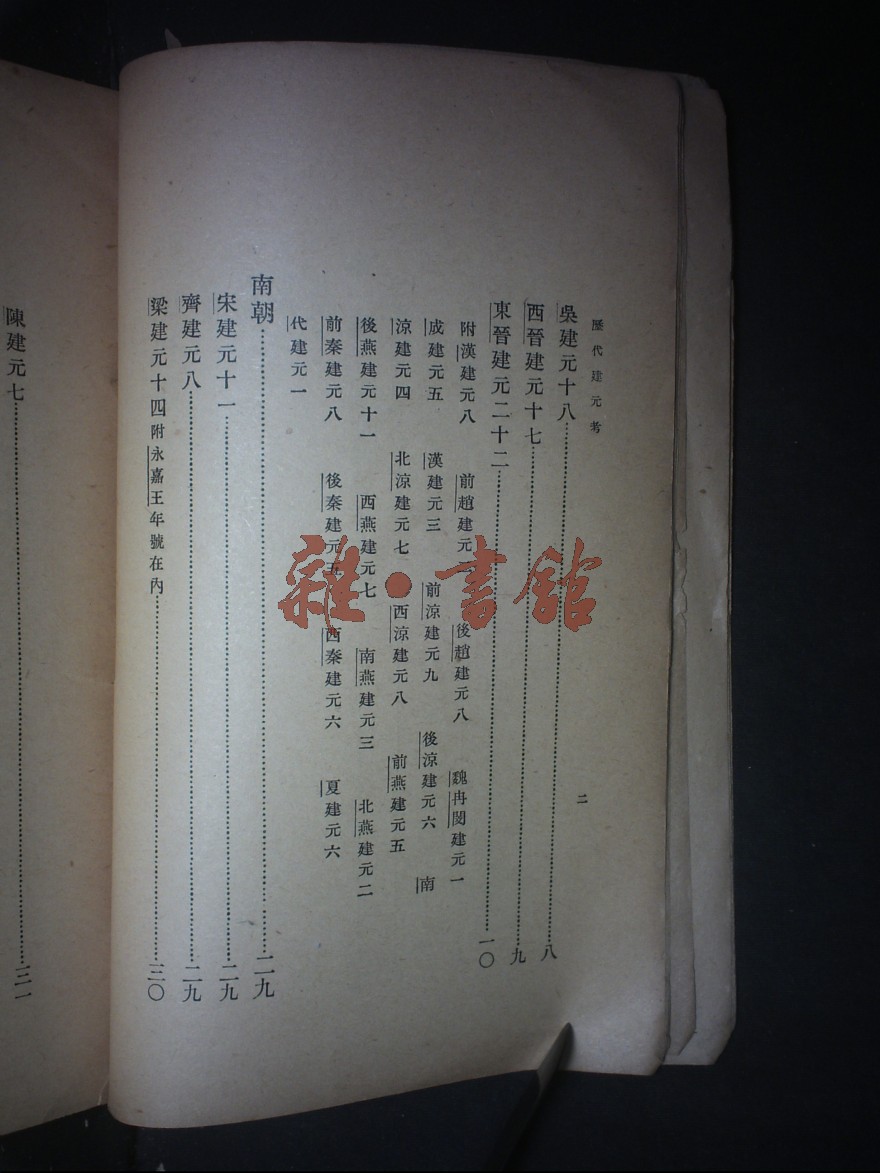 歷代建元考
二
吳建元十八……八
西晉建元十七……九
東晉建元二十二……一〇
附漢建元八　前趙建元　後趙建元八　魏冉閔建元一
成建元五　漢建元三　前涼建元九　後涼建元六　南
涼建元四　北涼建元七　西涼建元八　前燕建元五
後燕建元十一　西燕建元七　南燕建元三　北燕建元二
前秦建元八　後秦建元五　西秦建元六　夏建元六
代建元一
南朝……二九
宋建元十一……二九
齊建元八……二九
梁建元十四附永嘉王年號在內……三〇
陳建元七……三一
雜·書館